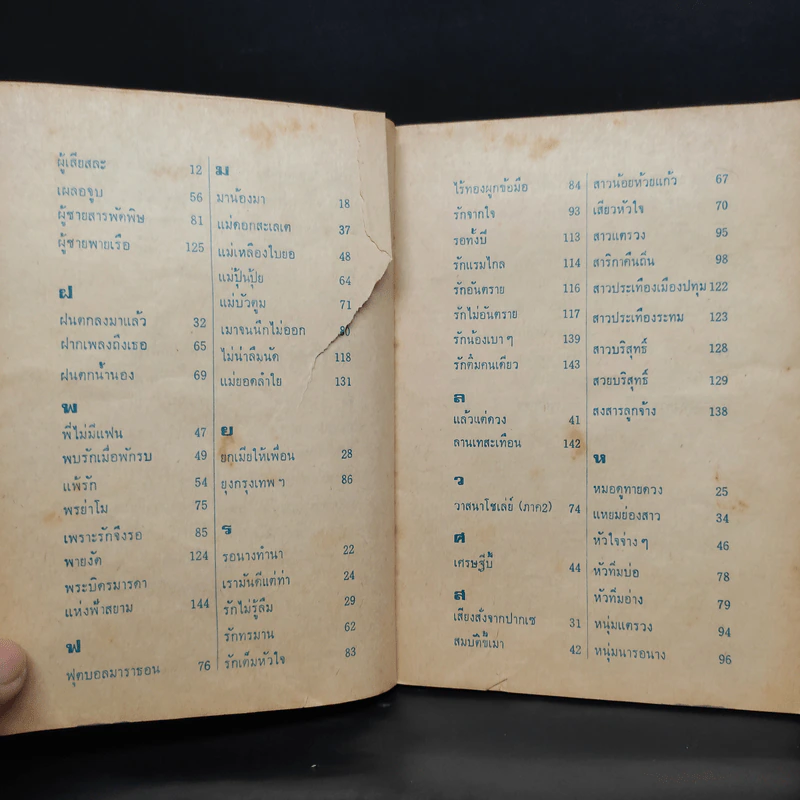 ผู้เสียสละ 12
เผลอจูบ 56
ผู้ชายสารพัดพิษ 81
ผู้ชายพายเรือ 125
ฝ
ฝนตกลงมาแล้ว 32
ฝากเพลงถึงเธอ 65
ฝนตกน้ำนอง 69
พ
พี่ไม่มีแฟน 47
พบรักเมื่อพักรบ 49
แพ้รัก 54
พรย่าโม 75
เพราะรักจึงรอ 85
พายงัด 124
พระบิดรมารดา
แห่งฟ้าสยาม 144
ฟ
ฟุตบอลมาราธอน 76
ม
มาน้องมา 18
แม่ดอกสะเลเต 37
แม่เหลืองใบยอ 48
แม่ปุ้นปุ้ย 64
แม่บัวตูม 71
เมาจนนึกไม่ออก 80
ไม่น่าลืมนัด 118
แม่ยอดลำไย 131
ย
ยกเมียให้เพื่อน 28
ยุงกรุงเทพฯ 86
ร
รอนางทำนา 22
เรามันดีแต่ท่า 24
รักไม่รู้ลืม 29
รักทรมาน 62
รักเต็มหัวใจ 83
ไร้ทองผูกข้อมือ 84
รักจากใจ 93
รอทั้งปี 113
รักแรมไกล 114
รักอันตราย 116
รักไม่อันตราย 117
รักน้องเบาๆ 139
รักติ๋มคนเดียว 143
ล
แล้วแต่ดวง 41
ลานเทสะเทือน 142
ว
วาสนาโชเล่ย์ (ภาค2) 74
ศ
เศรษฐีขี้ 44
ส
เสียงสั่งจากปากเซ 31
สมบัติขี้เมา 42
สาวน้อยห้วยแก้ว 67
เสียวหัวใจ 70
สาวแตรวง 95
สาริกาคืนถิ่น 98
สาวประเทืองเมืองปทุม 122
สาวประเทืองระทม 123
สาวบริสุทธิ์ 128
สวยบริสุทธิ์ 129
สงสารลูกจ้าง 138
ห
หมอดูทายดวง 25
แหยมย่องสาว 34
หัวใจจ่างๆ 46
หัวทิ่มบ่อ 78
หัวทิ่มอ่าง 79
หนุ่มแตรวง 94
หนุ่มนารอนาง 96